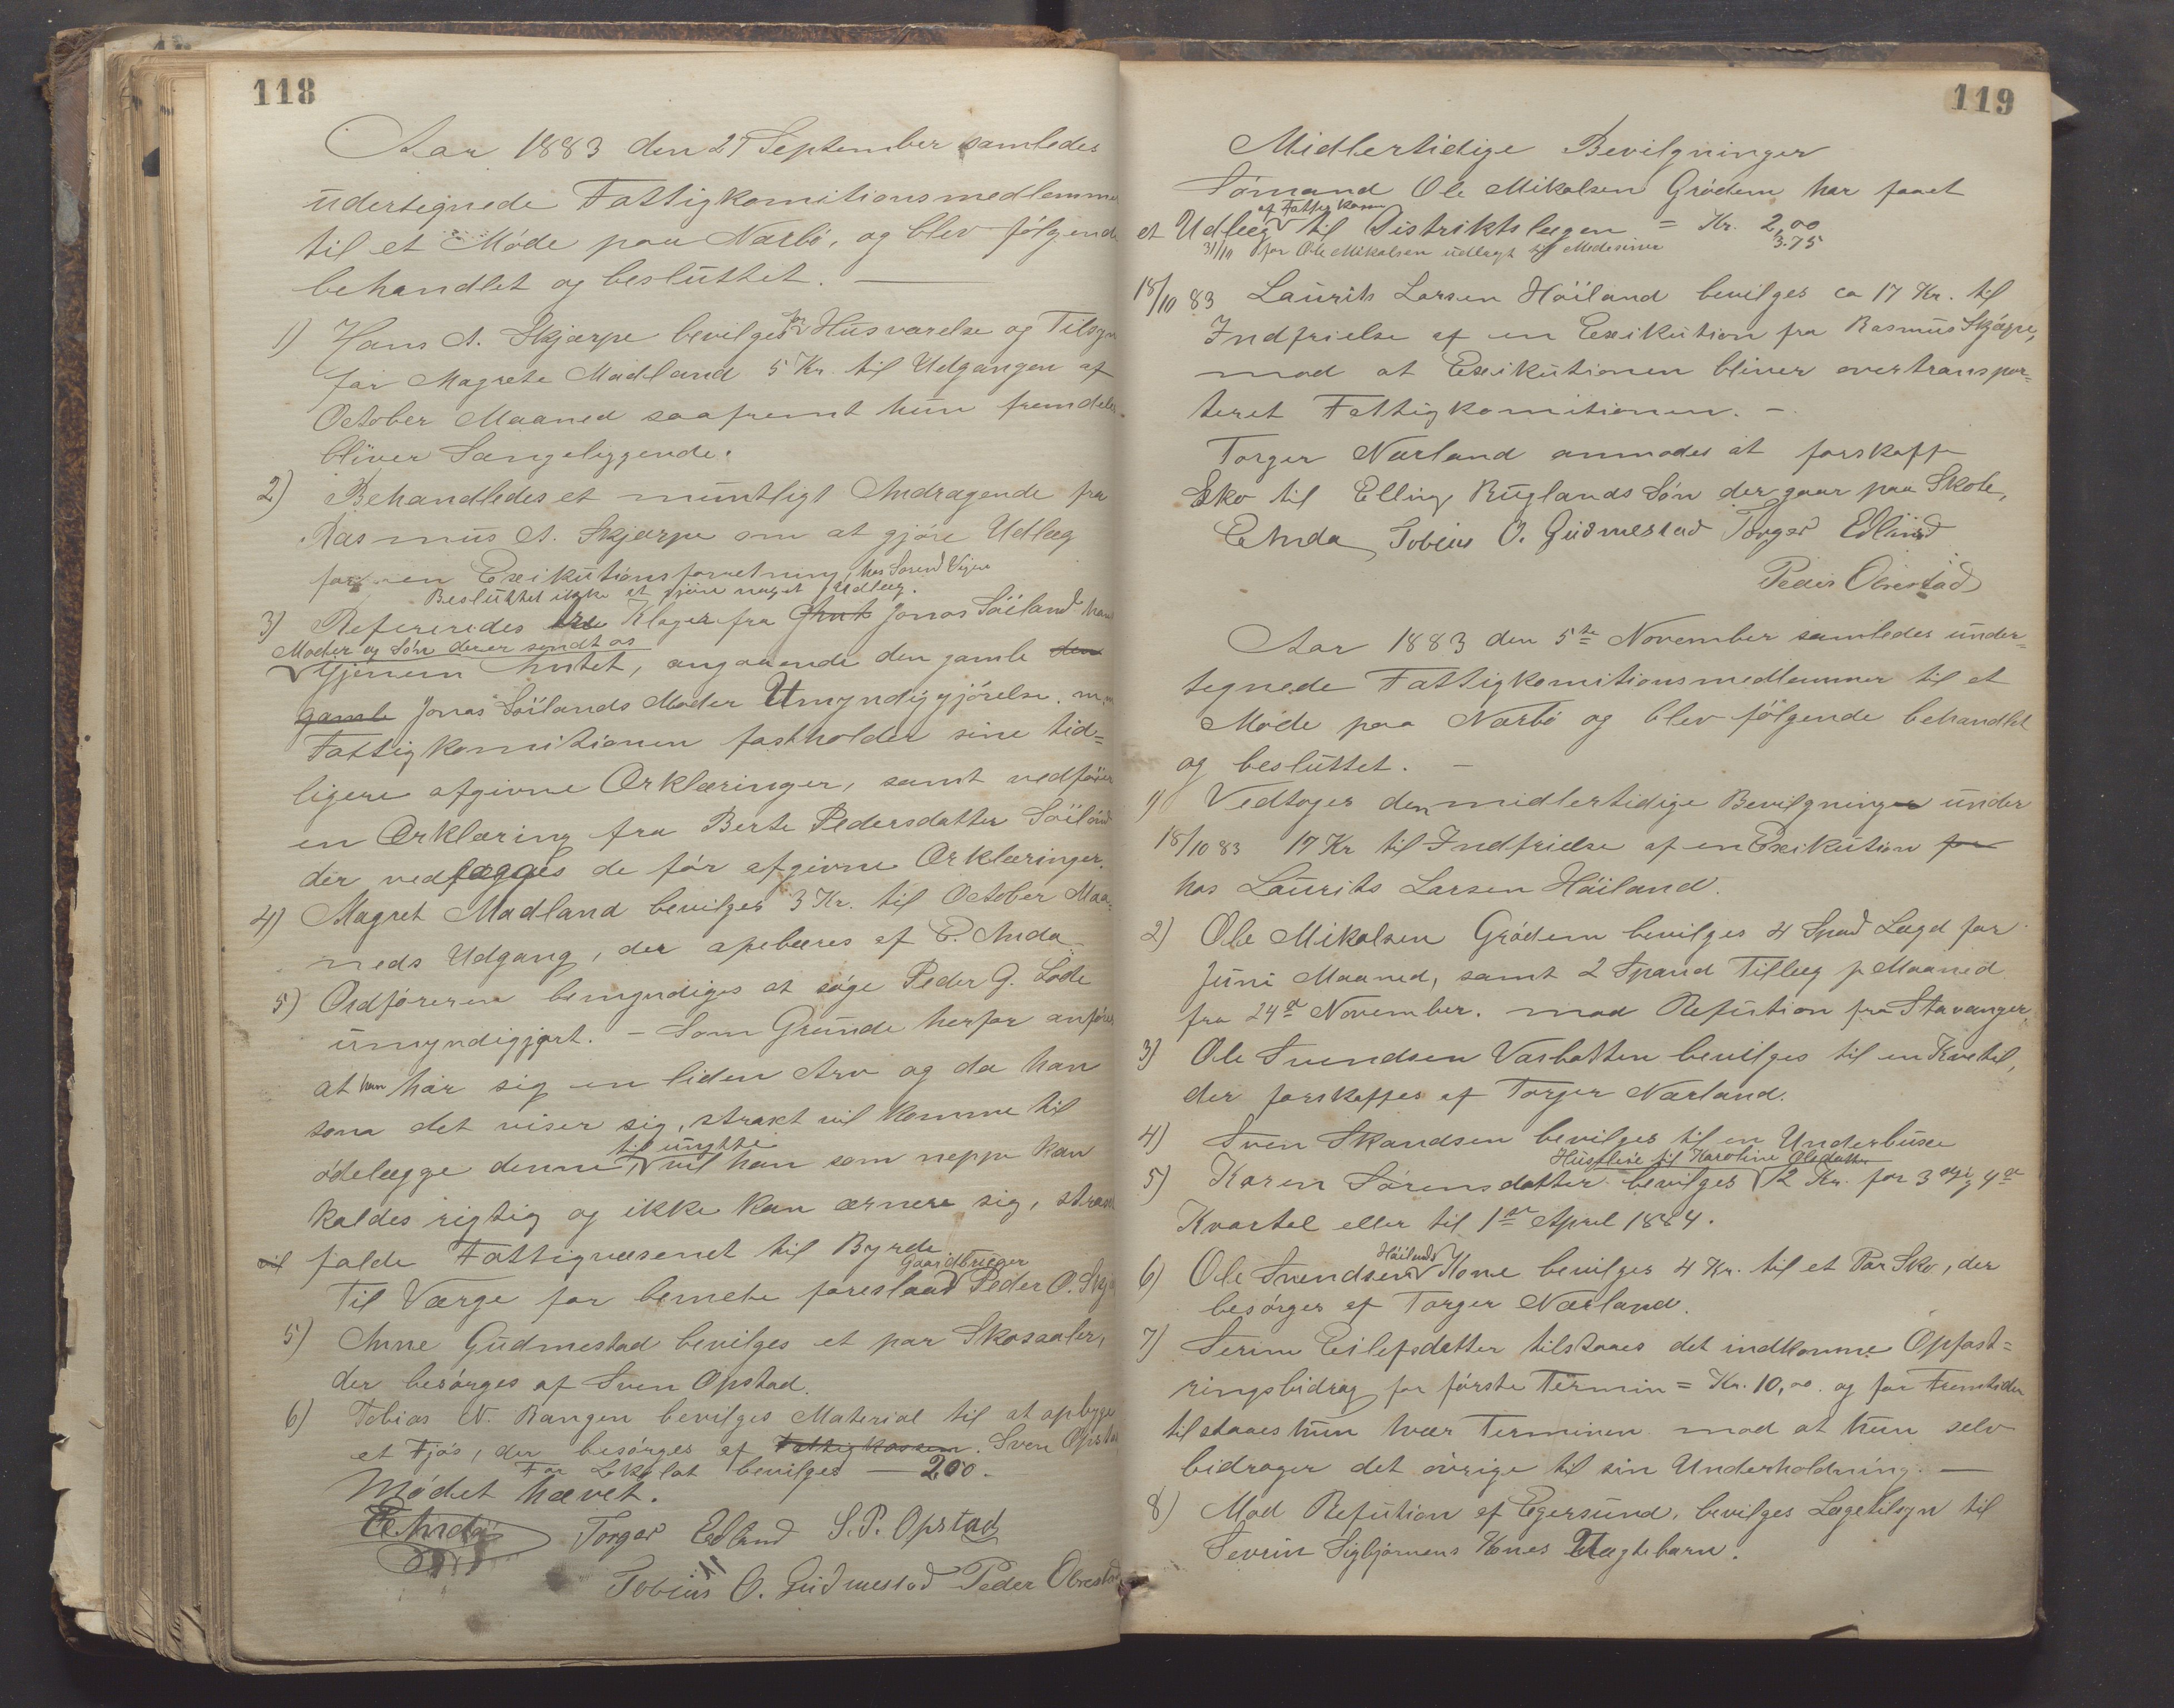 118
Aar 1883 den 27 September samledes
udertegnede Fattigkomitionsmedlemmer
til et Möde paa Nærbö, og blev fölgende
behandlet og besluttet. —
1) Hans A. Skjærpe bevilges for Husværelse og Tilsyn
for Magrete Madland 5 Kr. til Udgangen af
October Maaned saafremt hun fremdeles
bliver Sængeliggende.
2) Behandledes et mundtligt Andragende fra
Rasmus A. Skjærpe om at gjöre Udlæg
for en Exikutionsforretning, hos
Besluttet ikke at gjöre noget Udlæg.
3) Refereredes Klager fra Jonas Söiland
Moder og Sön der er sendt os
Gjenem Amtet, angaaende den gamle den
gamle Jonas Söilands Moder Umyndiggjörelse.
Fattigkomitionen fastholder sine tid=
ligere afgivne Erklæringer, samt vedföier
en Erklæring fra Berte Pedersdatter Söiland
der vedlægges de för afgivne Erklæringer.
4) Magret Madland bevilges 3 Kr. til October Maa=
neds Udgang, der opebæres af E. Anda
5) Ordföreren bemyndiges at söge Peder G. Lode
umyndiggjort. – Som Grunde herfor anföres
at han har sig en liden Arv og da han
som det viser sig, strakt vil komme til
ödelægge denne til unytte vil han som neppe kan
kaldes rigtig og ikke kan ærnere sig, straks
vil falde Fattigvæsenet til Byrde
Gaardbruger
Til Værge for bemelte foreslaaes Peder O.
5) Anne Gudmestad bevilges et par Skosaaler,
der besörges af Sven Opstad.
6) Tobias N. Bangen bevilges Material til at opbygge
et Fjös, der besörges af Fattigkassen. Sven Opstad
bevilges — 200.
Mödet hævet.
E Anda Torger Edland S. P. Opstad
Tobias O. Gudmestad Peder Obrestad
119
Midlertidige Bevilgninger
Sömand Ole Mikalsen Grödem har faaet
af Fattigkassen
et Udlæg til Distriktslægen = Kr. 2,00
31/10 for Ole Mikalsen udlagt til Medesiner 3.75
18/10 83 Laurits Larsen Höiland bevilges ca 17 Kr. til
Indfrielse af en Exikution fra Rasmus Skjærpe,
mod at Exikutionen bliver overtranspor=
teret Fattigkomitionen. –
Torger Nærland anmodes at forskaffe
Sko til Elling Ruglands Sön der gaar paa Skole,
E Anda Tobias O. Gudmestad Torger Edland
Peder Obrestad
Aar 1883 den 5te November samledes under=
tegnede Fattigkomitionsmedlemmer til et
Möde paa Nærbö og blev fölgende behandlet
og besluttet. –
1) Vedtoges den midlertidige Bevilgninger under
18/10 83 17 Kr til Indfrielse af en Exikution for
hos Laurits Larsen Höiland.
2) Ole Mikalsen Grödem bevilges 4 Spad Lægd for
Juni Maaned, samt 2 Spand Tillæg p Maaned
fra 24de November. mod Refution fra Stavanger.
3) Ole Svendsen Vasbotten bevilges til en Kvetel,
der forskaffes af Torger Nærland.
4) Sven Skandsen bevilges til en Underbuxe
Husleie til Karoline Olsdatter
5) Karen Sörensdatter bevilges 12 Kr. for 3die og 4de
Kvartal eller til 1ste April 1884.
6) Ole Svendsen Höilands Kone bevilges 4 Kr. til et Par Sko, der
besörges af Torger Nærland.
7) Serine Eilefsdatter tilstaaes det indkomne Opfost=
ringsbidrag for förste Termin = Kr. 10,00. og for Fremtiden
tilstaaes hun hver Terminen mod at hun selv
bidrager det övrige til sin Underholdning. —
8) Mod Refution af Egersund, bevilges Lægetilsyn til
Sevrin Sigbjörnsens Kones Plægtebarn.